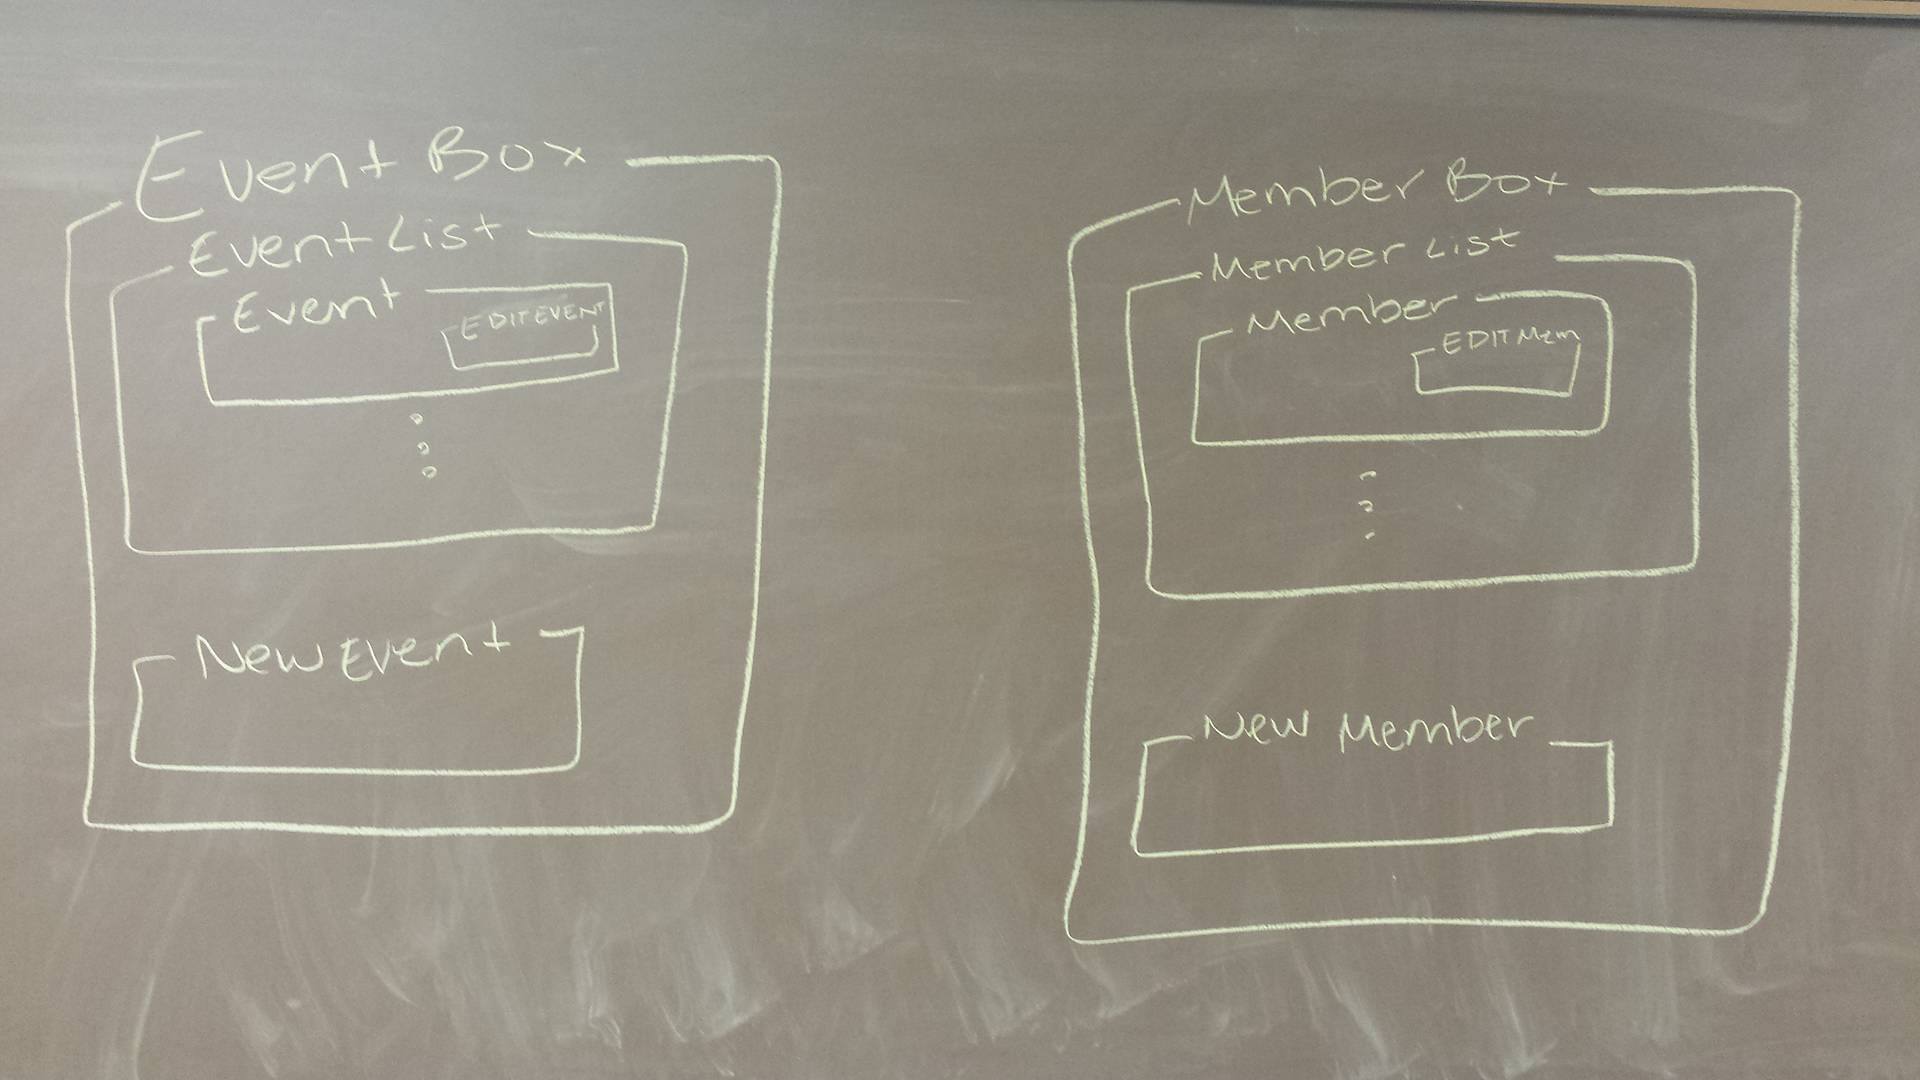 Event Box
Event List
Event
EDIT EVENT
New Event
Member Box
Member List
Member
EDIT Mem
New Member